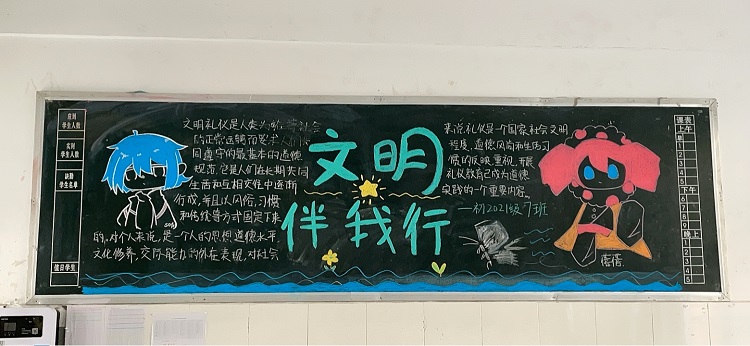 应到
学生人数
实到
学生人数
缺勤
学生名单
值日学生
文明礼仪是人类为维 社会
的正常运转而要求人们共
同遵守的最基本的道德
规范,它是人们在长期共同
生活和互相交往中逐渐
形成,并且以风俗、习惯
和传统等方式固定下来
的,对个人来说,是一个人的思想道德水平,
文化修养,交际能力的外在表现,对社会
文明
伴我行
来说,礼仪是一个国家社会文明
程度、道德风尚和生活习
惯的反映.重视、开展
礼仪教育已成为道德
实践的一个重要内容.
——初2021级7班
课表
星期
上午
1
2
3
4
5
下午
6
7
8
9
晚上
1
2
3
4
5